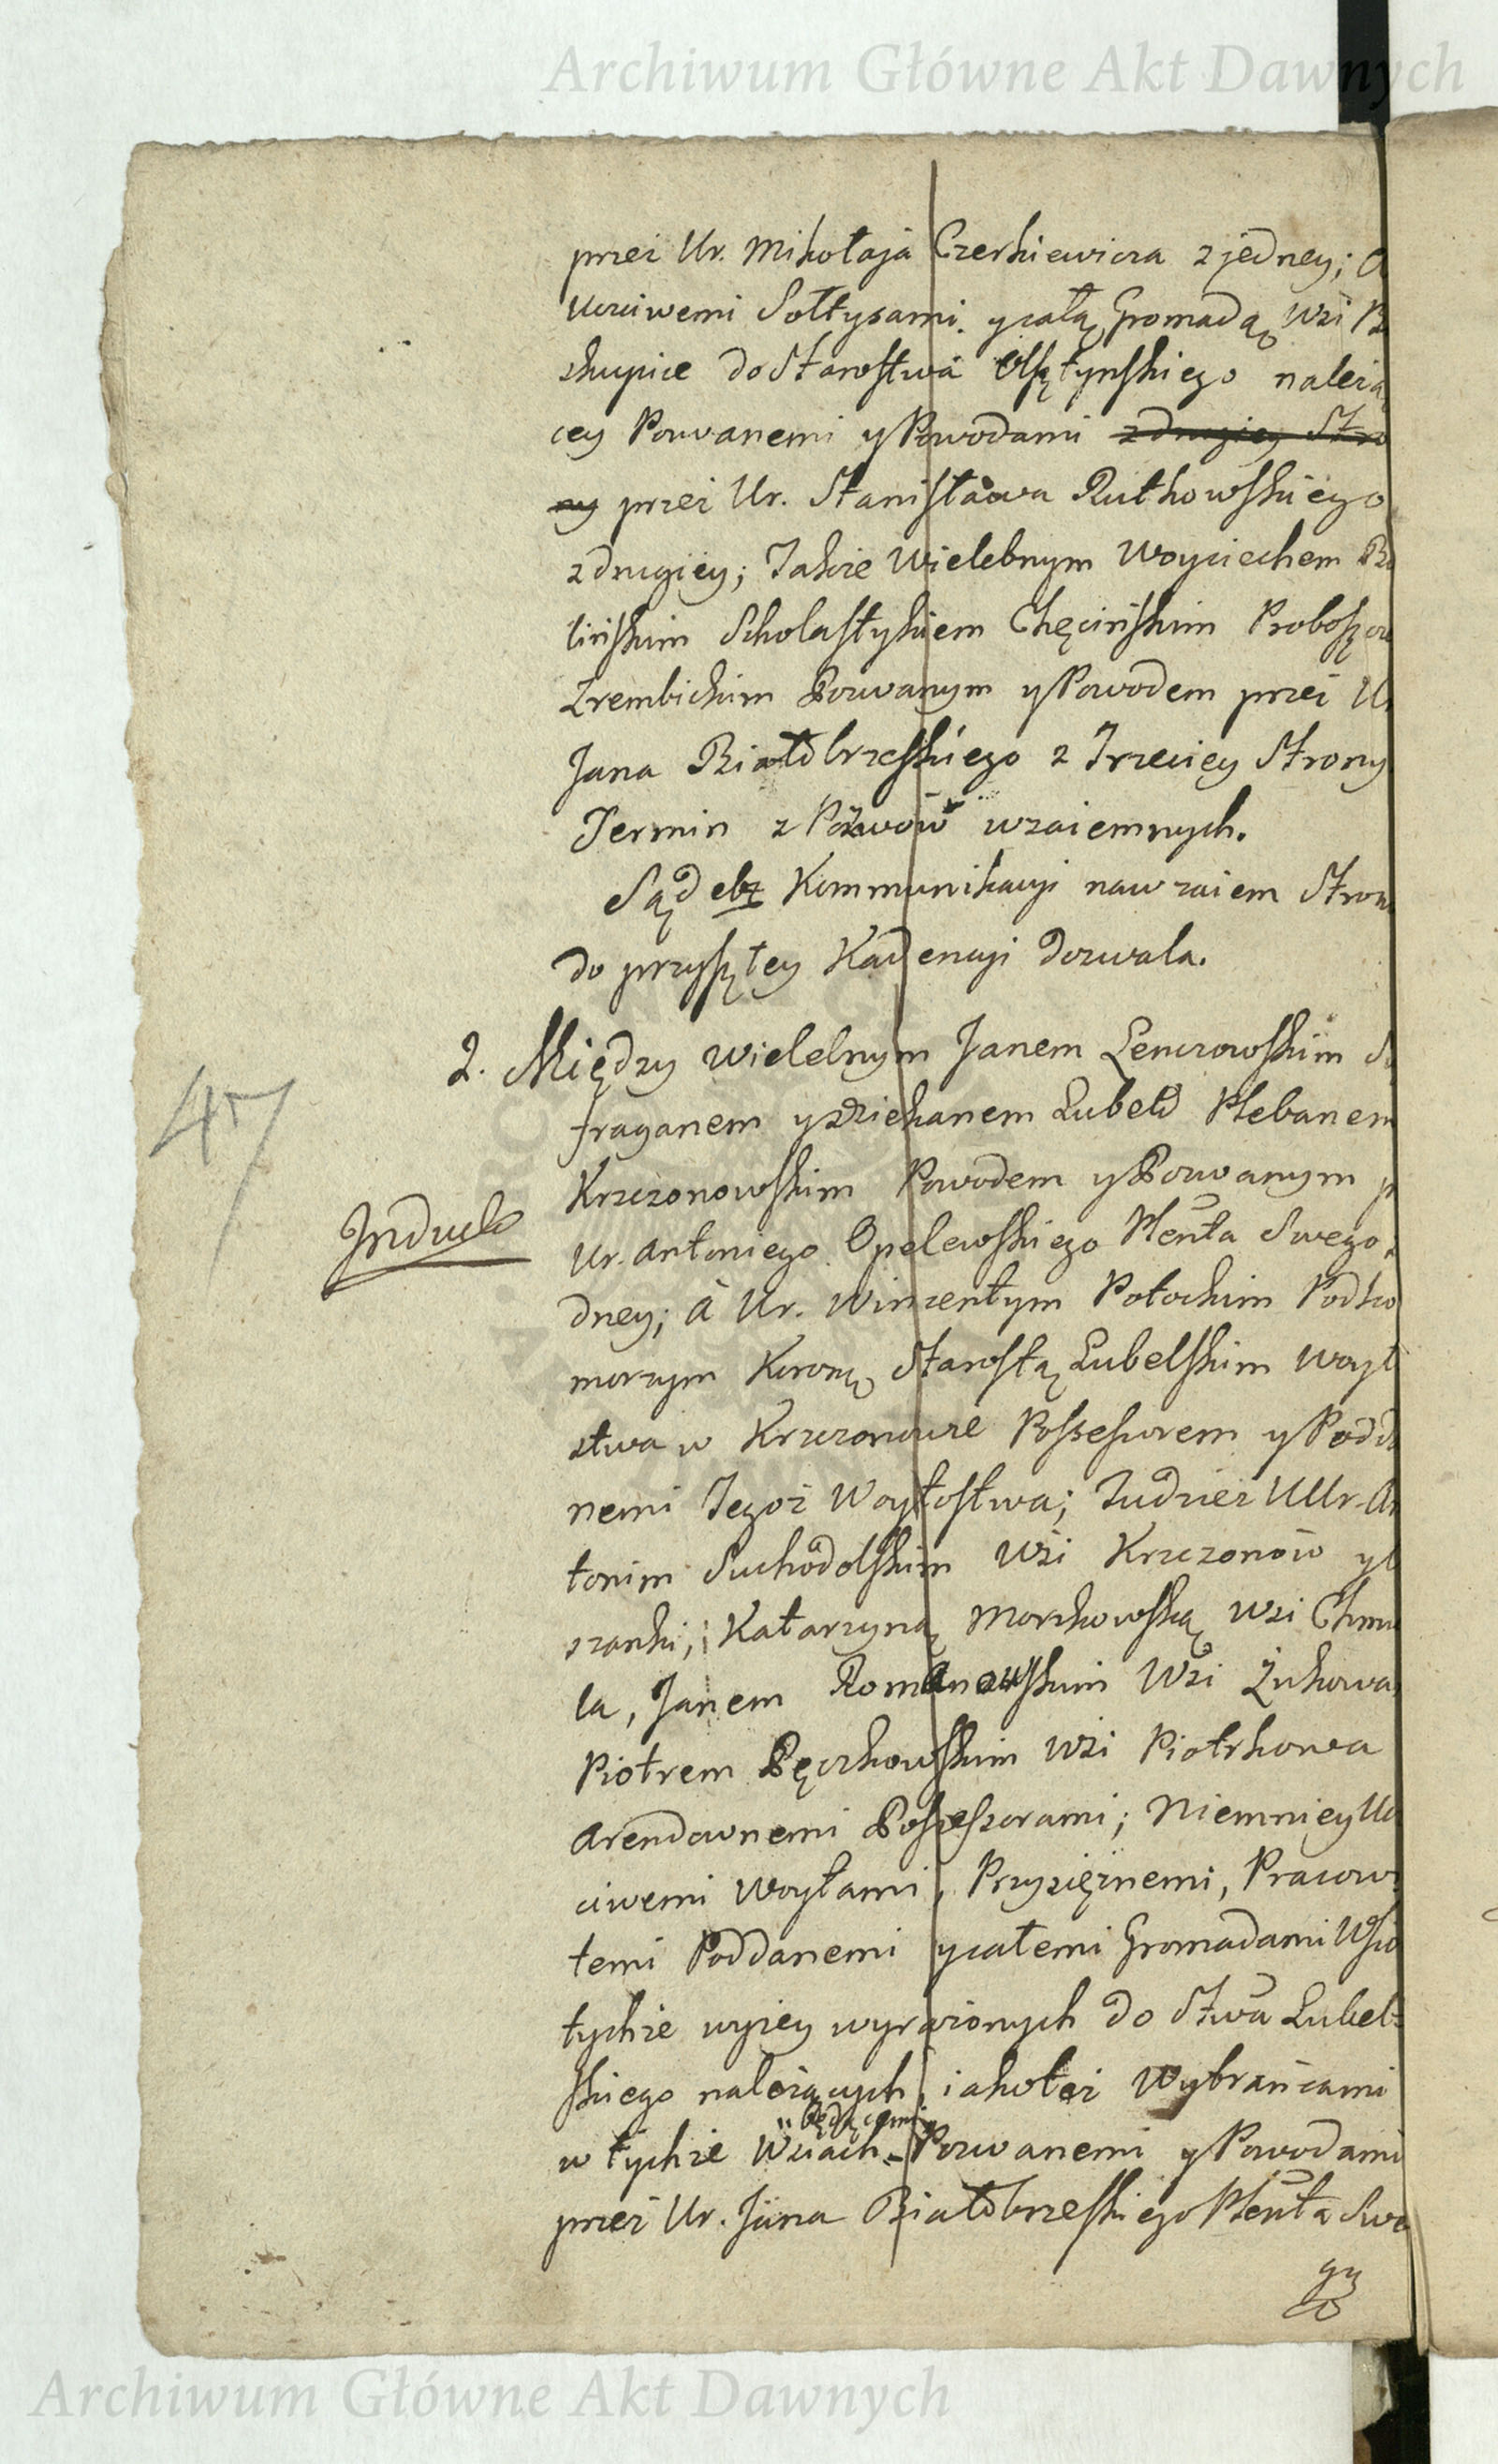 Archiwum Główne Akt Dawnych
przez Ur. Mikołaja Czerkiewicza z jedney; A
Ucziwemi Sołtysami y całą Gromadą Wsi Bi
skupice do Starostwa Olsztynskiego należą
cey Pozwanemi y Powodami z drugiey Stro
ny przez Ur. Stanisława Rutkowskiego
z drugiey; Także Wielebnym Woyciechem
lińskim Scholastykiem Chęcińskim Proboszcze
Zrembickim Pozwanym y Powodem przez Ur
Jana Białobrzeskiego z Trzeciey Strony
Termin z Pozwów wzaiemnych.
Sąd Kommunikacyi nawzaiem Stron
do przyszłey Kadencyi dozwala.
2. Między Wielebnym Janem Lenczowskim Su
fraganem y Dziekanem Lubel Plebanem
Krzczonowskim Powodem y Pozwanym p
47
Inducta
Ur. Antoniego Opelewskiego Plenta Swego
dney; A Ur. Wincentym Potockim Podko
morzym Koronn. Starostą Lubelskim Woyt
stwa w Krzczonowie Possessorem y Podda
nemi Tegoż Woytostwa; Tudzież UUr. An
tonim Suchodolskim Wsi Krzczonów y
szanki, Katarzyną Morzkowską Wsi Chmie
la, Janem Romanowskim Wsi Żukowa
Piotrem Bęczkowskim Wsi Piotrkowa
Arendownemi Possessorami; Niemniey Uc
ciwemi Woytami, Przysiężnemi, Pracowi
temi Poddanemi y całemi Gromadami Wsiów
tychże wyżey wyrażonych do Stwa Lubel-
skiego należących, iako też Wybrańcami
" będącemi
w tychże Wsiach Pozwanemi y Powodami
przez Ur. Jana Białobrzeskiego Plenta Swe
Archiwum Główne Akt Dawnych